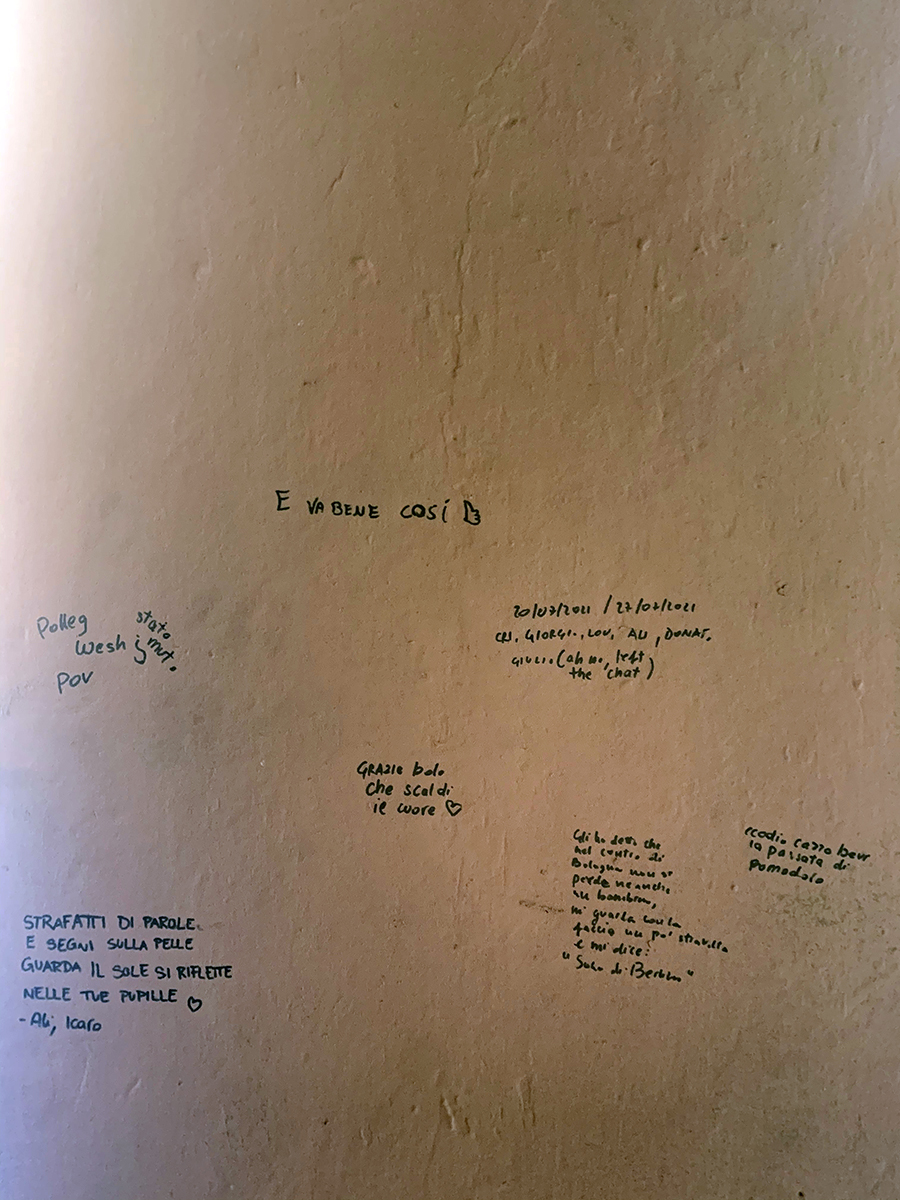 E VA BENE COSÍ
Polleg
wesh
pov
stato
mut.
20/07/2021 / 27/07/2021
CRI, GIORGI., LOU, ALI, DONAT,
GIULI. (ah no, left
the chat)
GRAZIE bolo
che scaldi
ie cuore ♡
Gli ho detto che
nel centro di
Bologna non si
perde neanche
un bambino,
mi guarda con la
faccia un po' stravolta
e mi dice:
"Sono di Berlino"
la passata di
pomodoro
STRAFATTI DI PAROLE
E SEGNI SULLA PELLE
GUARDA IL SOLE SI RIFLETTE
NELLE TUE PUPILLE ♡
- Ali, Icaro